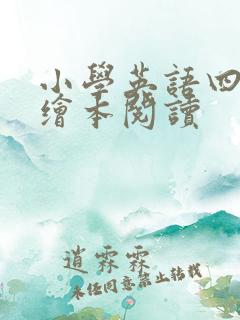 小學英語四
繪本閱讀
逍霖霖
未任同意禁止转载